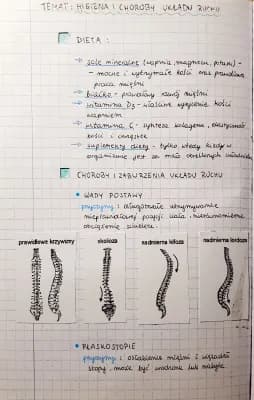 TEMAT: HIGIENA I CHOROBY UKŁADU RUCHU
DIETA:
→ sole mineralne (wapnia, magnezu, potasu) -
- mocne i wytrzymałe kości oraz prawidłowa
praca mięśni
→ białko - prawidłowy rozwój mięśni
→ witamina D₃ - właściwe wysycenie kości
wapniem
→ witamina C - synteza kolagenu, elastyczność
kości i chrząstek
→ suplementy diety - tylko wtedy kiedy w
organizmie jest za mało określonych składników
CHOROBY I ZABURZENIA UKŁADU RUCHU
• WADY POSTAWY
przyczyny: długotrwałe utrzymywanie
nieprawidłowej pozycji ciała, nierównomierne
obciążenie
prawidłowe krzywizny
skolioza
nadmierna kifoza
nadmierna lordoza
• PŁASKOSTOPIE
przyczyny: osłabienie mięśni i więzadeł
stopy, może być wrodzone lub nabyte.